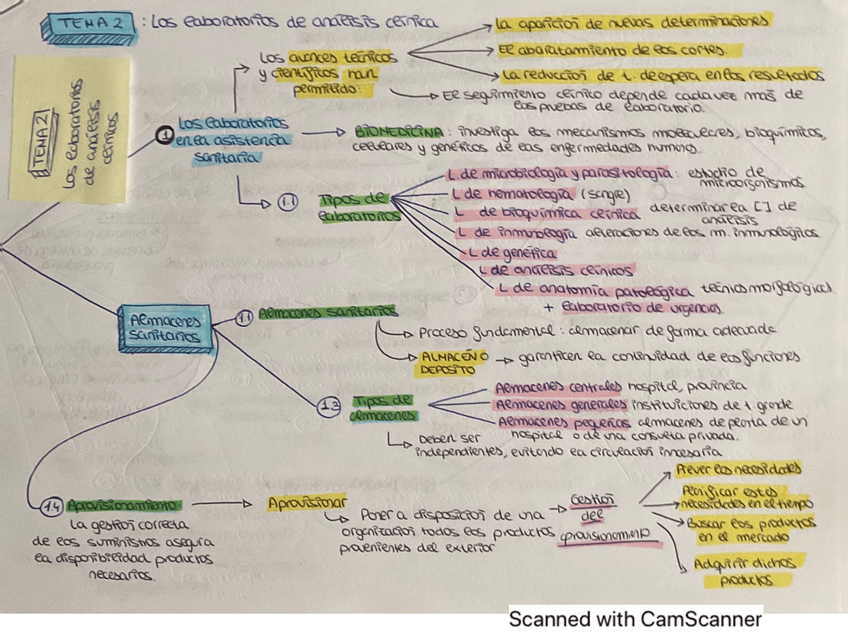 TEMA 2 : Los laboratorios de análisis clínica
TEMA 2
Los laboratorios
de análisis
clínicos
1 Los laboratorios
en la asistencia
sanitaria
Los avances técnicos
y científicos han
permitido:
La aparición de nuevas determinaciones
El abaratamiento de los cortes.
La reducción de t. de espera en los resultados
El seguimiento clínico depende cada vez más de
las pruebas de laboratorio.
BIOMEDICINA: investiga los mecanismos moleculares, bioquímicos,
celulares y genéticos de las enfermedades humanas.
1.1 Tipos de
laboratorios
L de microbiología y parasitología: estudio de
microorganismos
L de hematología (sangre)
L de bioquímica clínica determinar la [ ] de
análisis
L de inmunología alteraciones de los m. inmunológicos.
L de genética
L de análisis clínicos
L de anatomía patológica técnicas morfológicas.
+ laboratorio de urgencias.
Almacenes
sanitarios
1.1 Almacenes sanitarios
Proceso fundamental: almacenar de forma adecuada
ALMACÉN O
DEPOSITO
garanticen la continuidad de las funciones
1.3 Tipos de
almacenes
Almacenes centrales hospital provincia
Almacenes generales instituciones de t grande
Almacenes pequeños almacenes de planta de un
hospital o de una consulta privada.
Deben ser
independientes, evitando la circulación incesaria
1.4 Aprovisionamiento
La gestión correcta
de los suministros asegura
la disponibilidad productos
necesarios.
Aprovisionar
Poner a disposición de una
organización todos los productos
provenientes del exterior
Gestión
del
aprovisionamiento
Prever las necesidades
Planificar estas
necesidades en el tiempo
Buscar los productos
en el mercado
Adquirir dichos
productos
Scanned with CamScanner